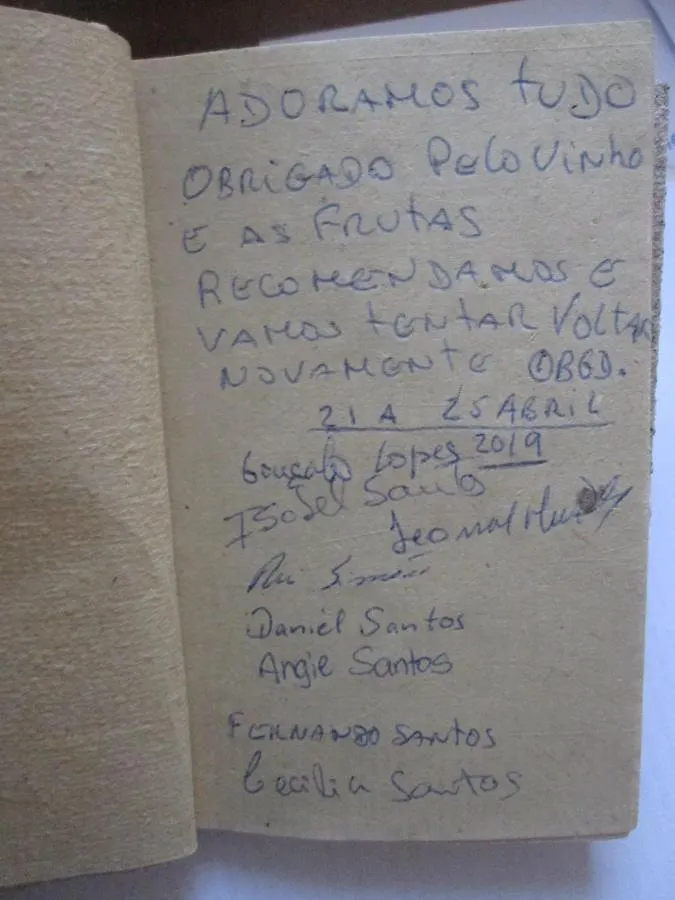 ADORAMOS TUDO
OBRIGADO PELO VINHO
E AS FRUTAS
RECOMENDAMOS E
VAMOS TENTAR VOLTAR
NOVAMENTE OBGD.
21 A 25 ABRIL
2019
Gonçalo Lopes
Isabel Santos
Rui Simões
Daniel Santos
Angie Santos
FERNANDO SANTOS
Cecilia Santos